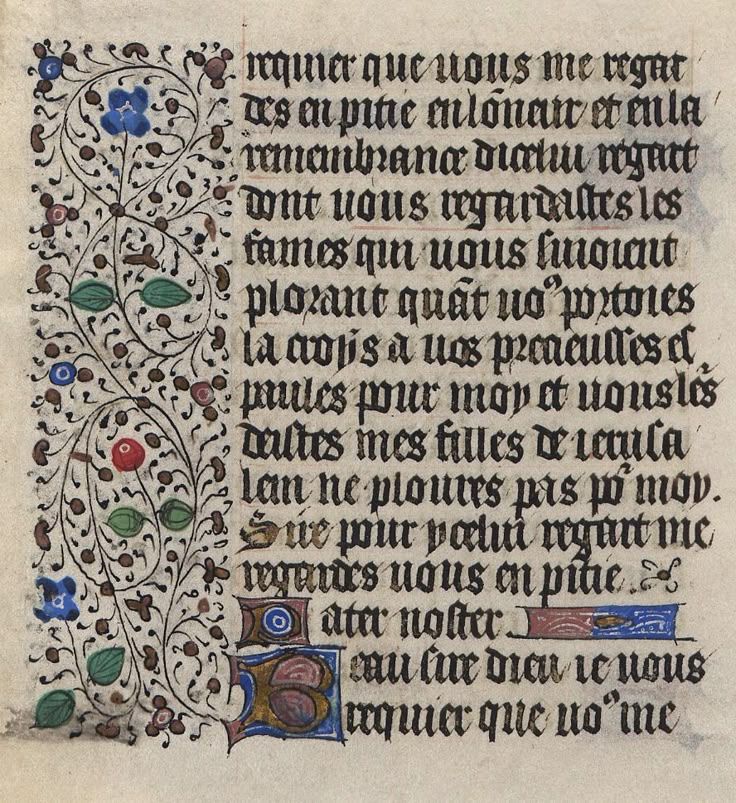 requier que uous me regar
des en pitie en lōneur et en la
remembrance dicelui regart
dont uous regardastes les
fames qui uous siuoient
plorant quāt uoꝰ portoies
la croys a uos precieusses es
paules pour moy et uous lēs
deistes mes filles de ierusa
lem ne ploures pas poʳ moy.
Sire pour ycelui regart me
regardes uous en pitie.
Pater noster
Beau sire dieu ie uous
requier que uoꝰ me